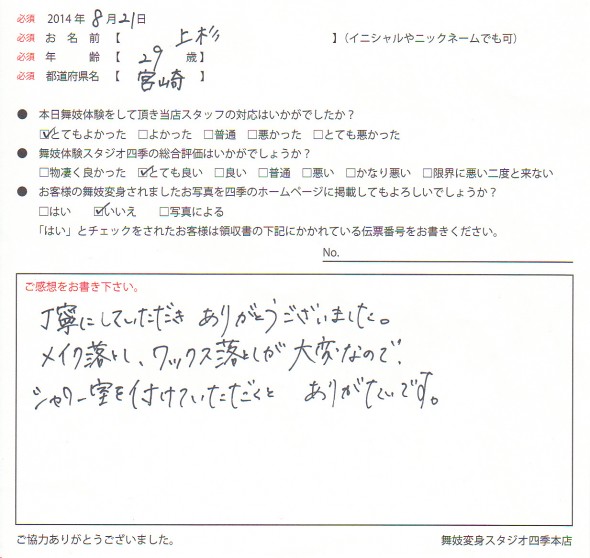 必須 2014年 8月21日
必須 お名前【 上杉 】（イニシャルやニックネームでも可）
必須 年齢【 29 歳】
必須 都道府県名【 宮崎 】
● 本日舞妓体験をして頂き当店スタッフの対応はいかがでしたか？
☑とてもよかった □よかった □普通 □悪かった □とても悪かった
● 舞妓体験スタジオ四季の総合評価はいかがでしょうか？
□物凄く良かった ☑とても良い □良い □普通 □悪い □かなり悪い □限界に悪い二度と来ない
● お客様の舞妓変身されましたお写真を四季のホームページに掲載してもよろしいでしょうか？
□はい ☑いいえ □写真による
「はい」とチェックをされたお客様は領収書の下記にかかれている伝票番号をお書きください。
No.
ご感想をお書き下さい。
丁寧にしていただき ありがとうございました。
メイク落とし、ワックス落としが 大変なので、
シャワー室を付けていただくと ありがたいです。
ご協力ありがとうございました。
舞妓変身スタジオ四季本店